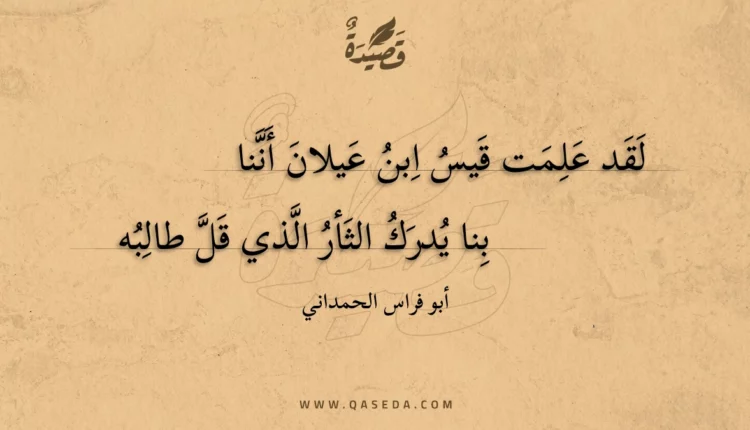 قَصِيْدَةٌ
لَقَد عَلِمَت قَيسُ اِبنُ عَيلانَ أَنَّنا
بِنا يُدرَكُ الثَأرُ الَّذي قَلَّ طالِبُه
أبو فراس الحمداني
WWW.QASEDA.COM